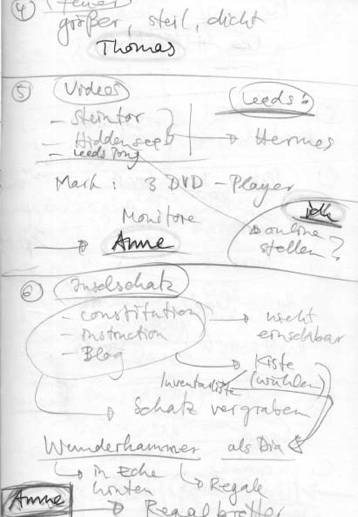 4)
größer, steil, dicht
Thomas
5) Videos
Leeds:
- Steintor
- Hiddensee
Hermes
- Leeds
Mark: 3 DVD-Player
Monitore
Anne
ich
online
stellen?
6) Inselschatz
- constitution
- instruction
- Blog
nicht
einsehbar
Kiste
(wühlen)
Inventarliste
Schatz vergraben
Wunderkammer als Dia
in Ecke
hinten
Regale
Anne
Regalbretter